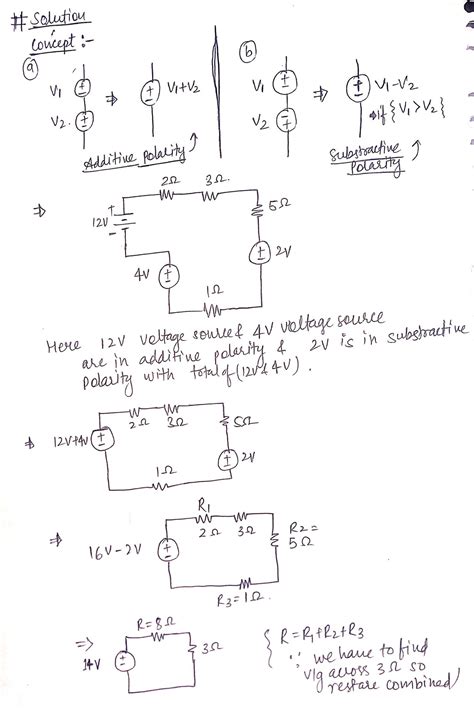 # Solution
Concept :-
(a)
V1
V2
⇒
V1+V2
Additive Polarity
(b)
V1
V2
⇒
V1-V2
if {V1>V2}
Substractive
Polarity
⇒
2Ω 3Ω.
12V
5Ω
2V
4V
1Ω
Here 12V voltage source & 4V voltage source
are in additive polarity & 2V is in substractive
polarity with total of (12V & 4V).
⇒ 12V+4V
2Ω 3Ω
5Ω
2V
1Ω
⇒
R1
2Ω 3Ω
R2=
5Ω
16V-2V
R3=1Ω.
⇒
R=8Ω
14V
3Ω
{ R=R1+R2+R3
∵ we have to find
v/g across 3Ω so
rest are combined}